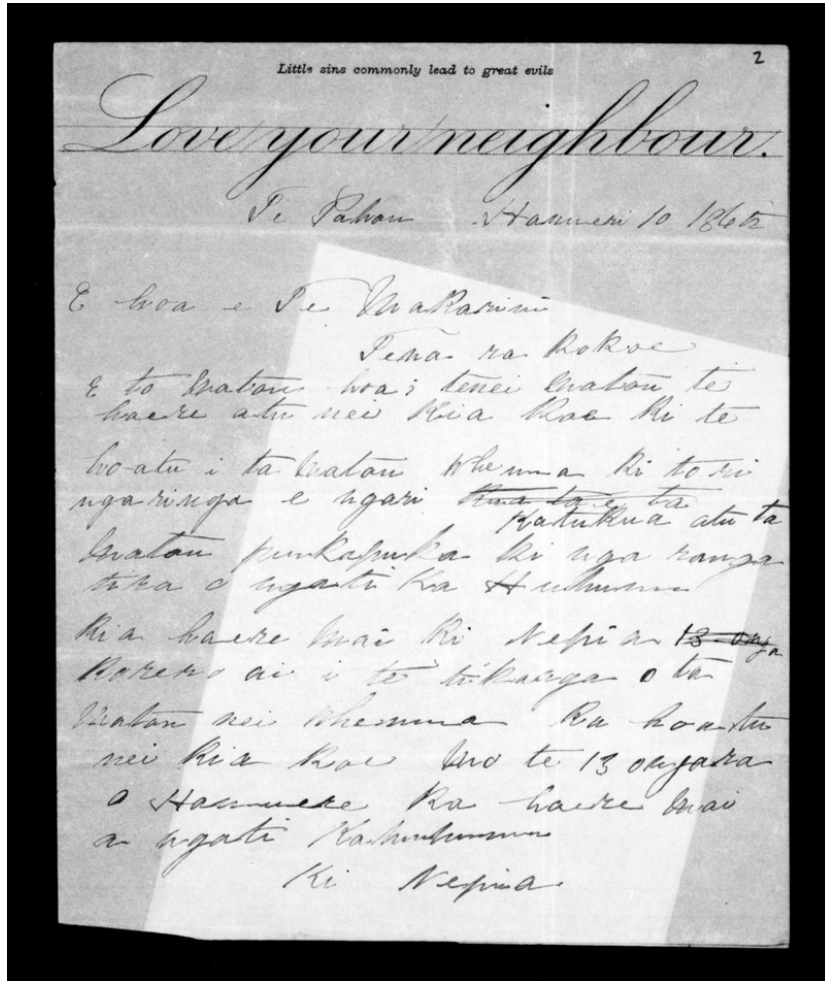 2
Little sins commonly lead to great evils
Love your neighbour.
Te Pahou Hanueri 10 186
E hoa e Te Makarini
Tena ra kokoe
E to matou hoa; tenei matou te
haere atu nei kia koe ki te
hoatu i ta matou whenua ki to ri
ngaringa e ngari
Katukua atu ta
matou pukapuka ki nga ranga
tira o ngati Ka Huhunu
kia haere mai ki Nepia 13 onga
korero ai i te tikanga o ta
matou nei whenua Ka hoatu
nei kia koe mo te 13 ongara
o Hanuere ka haere mai
a ngati Kahuhunu
Ki Nepia